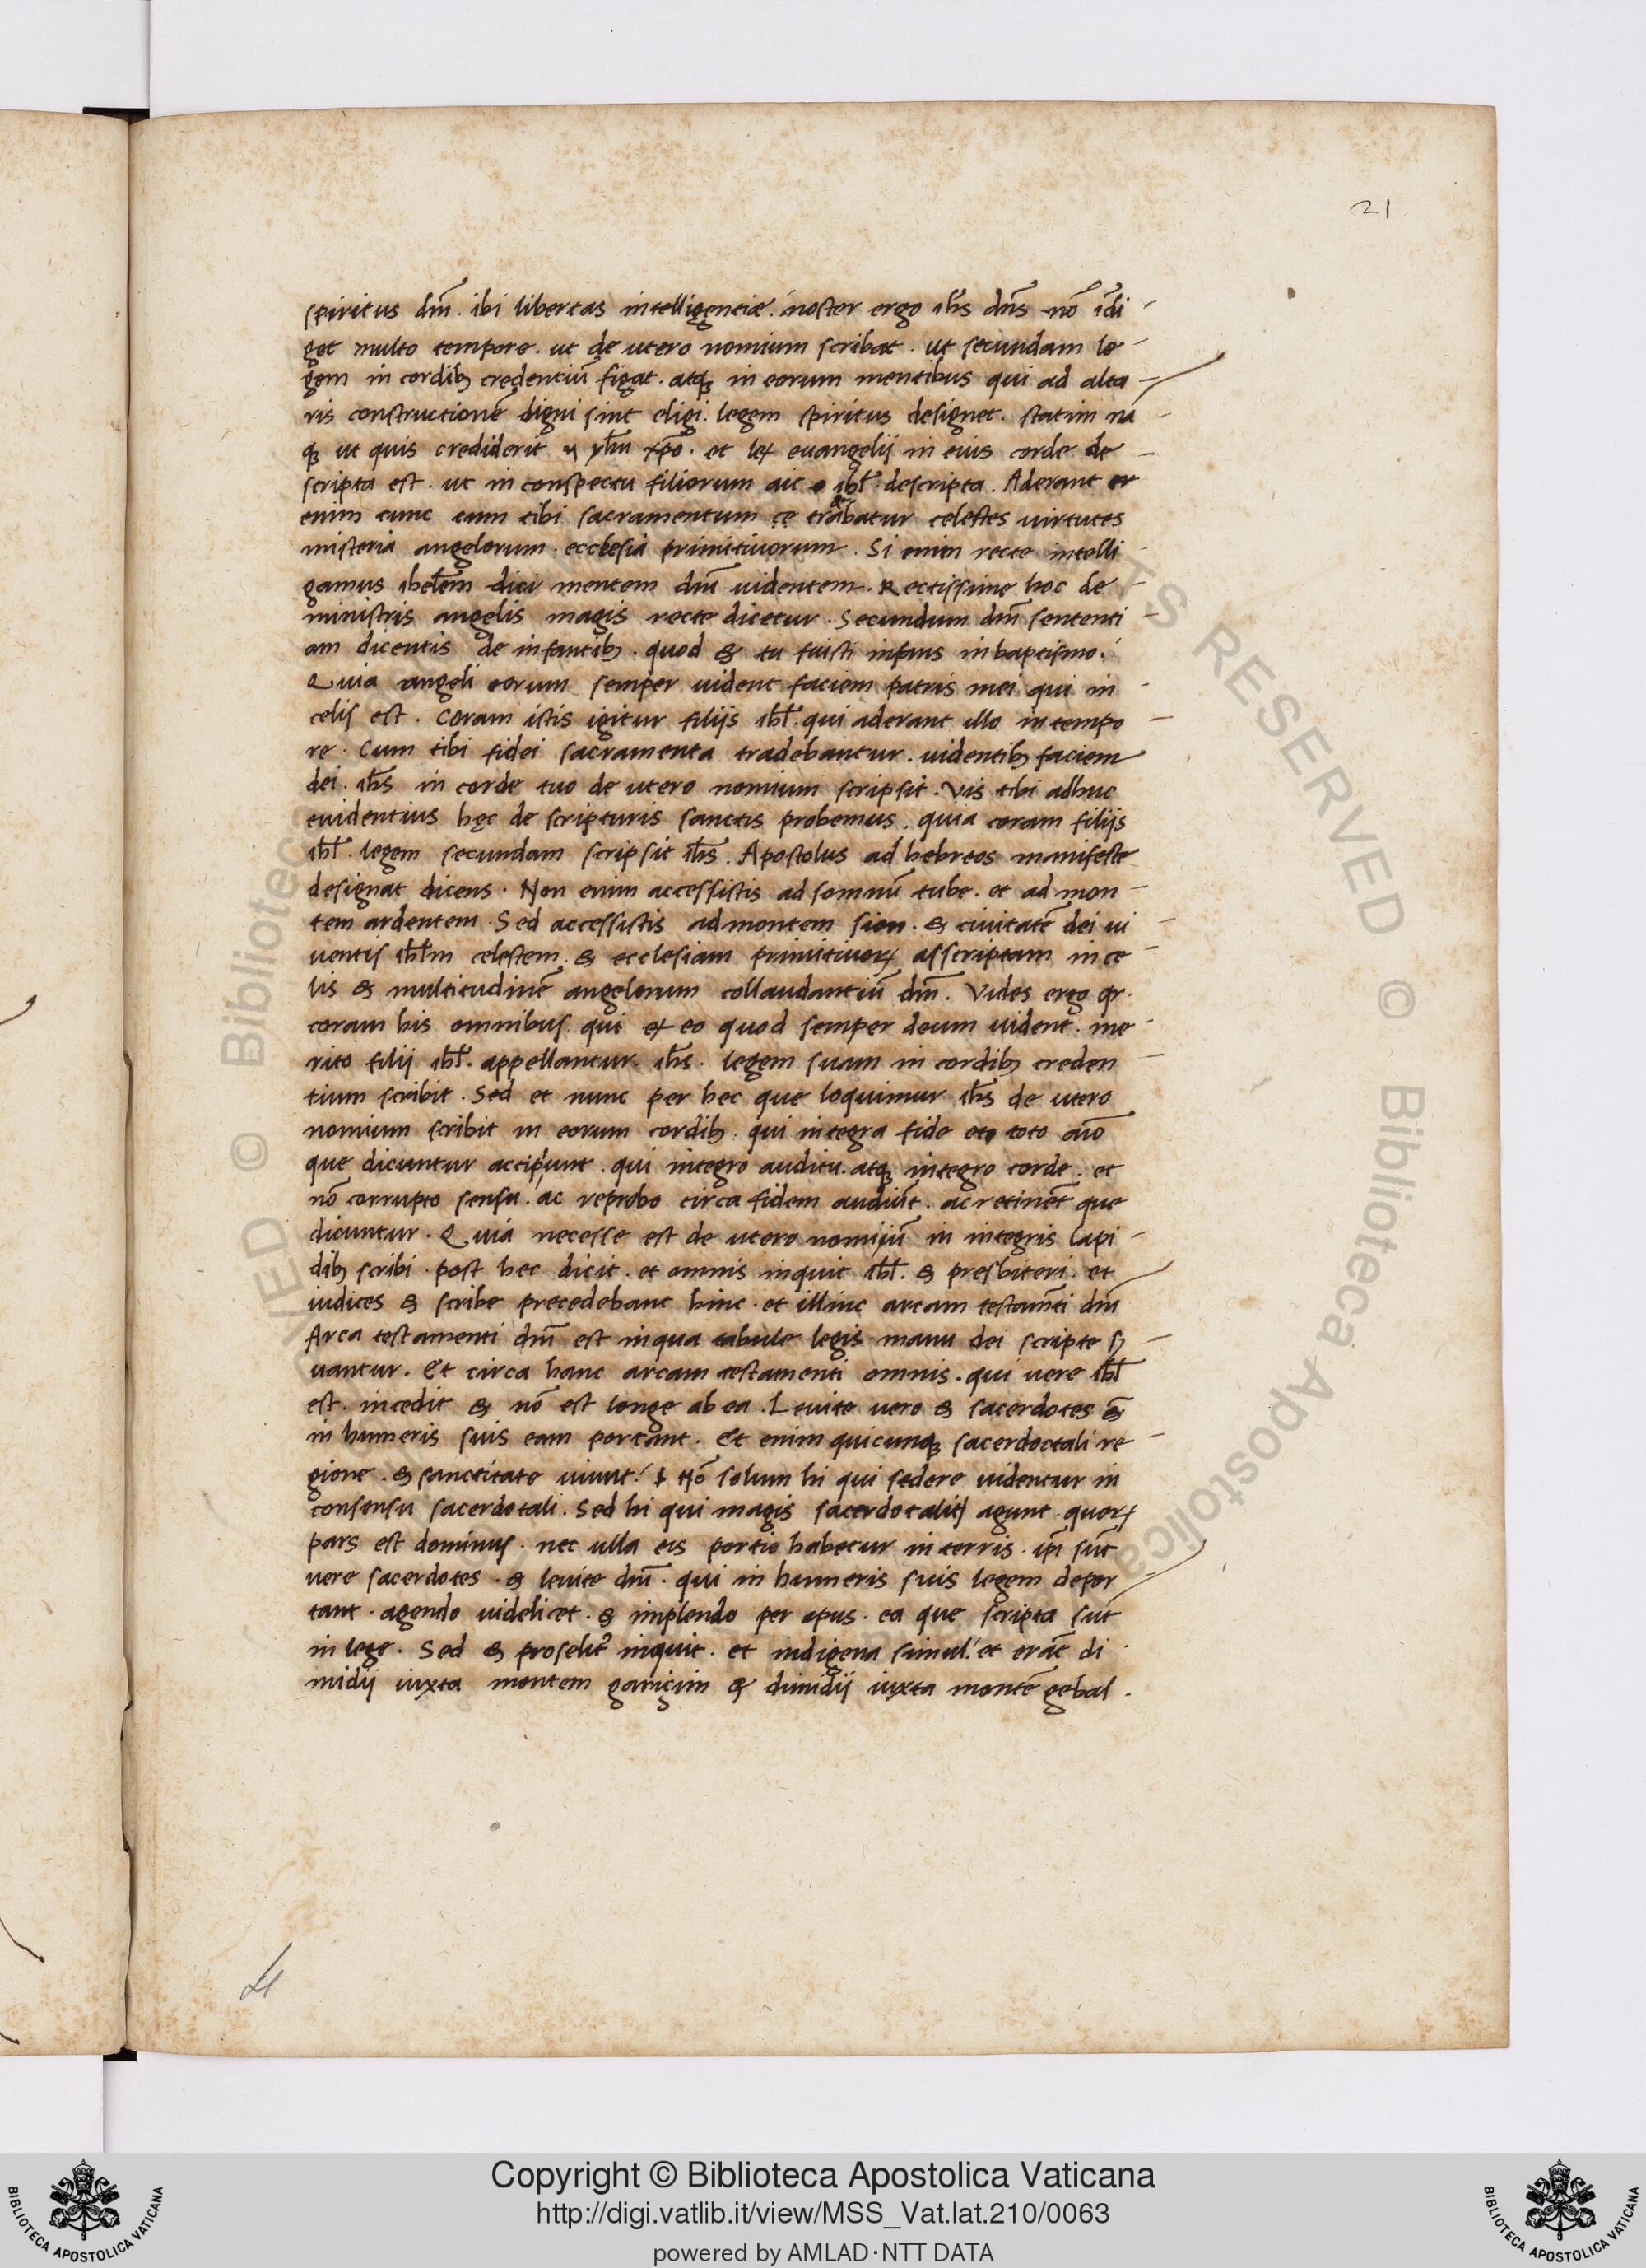 21
spiritus dn̄i. ibi libertas intelligentiæ. noster ergo ih̄s dn̄s nō īdi
get multo tempore. ut de utero nomium scribat. ut secundam le
gem in cordib; credentiū figat. atq; in eorum mentibus qui ad alta
ris constructionē digni sint eligi. legem spiritus designet. statim nā
q; ut quis crediderit yh̄u xp̄o. et lex euangelij in eius corde de
scripta est. ut in conspectu filiorum ait ibl̄. descripta. Aderant er
enim tunc cum tibi sacramentum ce trabatur celestes uirtutes
misteria angelorum. ecclesia primitiuorum. Si enim recte intelli
gamus ihel̄em dici mentem dn̄i uidentem. Rectissime hoc de
ministris angelis magis recte dicetur. Secundum dn̄i sententi
am dicentis de infantib;. quod & tu fuisti infans in baptismo.
Quia angeli eorum semper uident faciem patris mei qui in
celis est. Coram istis igitur filijs ibl̄. qui aderant illo in tempo
re. Cum tibi fidei sacramenta tradebantur. uidentib; faciem
dei. ih̄s in corde tuo de utero nomium scripsit. Vis tibi adhuc
euidentius hęc de scripturis sanctis probemus. quia coram filijs
ibl̄. legem secundam scripsit ih̄s. Apostolus ad hebreos manifeste
designat dicens. Non enim accessistis ad somnū tube. et ad mon
tem ardentem. Sed accessistis ad montem sion. & ciuitatē dei ui
uentis ibl̄m celestem. & ecclesiam primitiuoꝝ asscriptam in ce
lis & multitudinē angelorum collaudantiū dn̄m. Vides ergo qr.
coram his omnibus qui ex eo quod semper deum uident. me
rito filij ibl̄. appellantur. ih̄s. legem suam in cordib; creden
tium scribit. Sed et nunc per hec que loquimur ih̄s de utero
nomium scribit in eorum cordib;. qui integra fide et toto aīo
que dicuntur accipiunt. qui integro auditu. atq; integro corde. et
nō corrupto sensu. ac reprobo circa fidem audiūt. ac retinēt que
dicuntur. Quia necesse est de utero nomiū in integris lapi
dib; scribi. post hec dicit. et omnis inquit ibl̄. & presbiteri. et
iudices & scribe precedebant hinc. et illinc arcam testam̄ti dn̄i
Arca testamenti dn̄i est in qua tabule legis manu dei scripte s̄
uantur. Et circa hanc arcam testamenti omnis. qui uere ibl̄
est. incedit & nō est longe ab ea. Leuite uero & sacerdotes &̄
in humeris suis eam portant. Et enim quicunq; sacerdoctali re
gione. & sanctitate uiuunt. Nō solum hi qui sedere uidentur in
consensu sacerdotali. Sed hi qui magis sacerdotalit̄ agunt. quoꝝ
pars est dominus. nec ulla eis portio habetur in terris. ip̄i sūt
uere sacerdotes. & leuite dn̄i. qui in humeris suis legem depor
tant. agendo uidelicet. & implendo per opus. ea que scripta sūt
in lege. Sed & proselit᷒ inquit. et indigena simul. et erāt di
midij iuxta montem garicim & dimidij iuxta montē gebal.
Copyright © Biblioteca Apostolica Vaticana
http://digi.vatlib.it/view/MSS_Vat.lat.210/0063
powered by AMLAD·NTT DATA